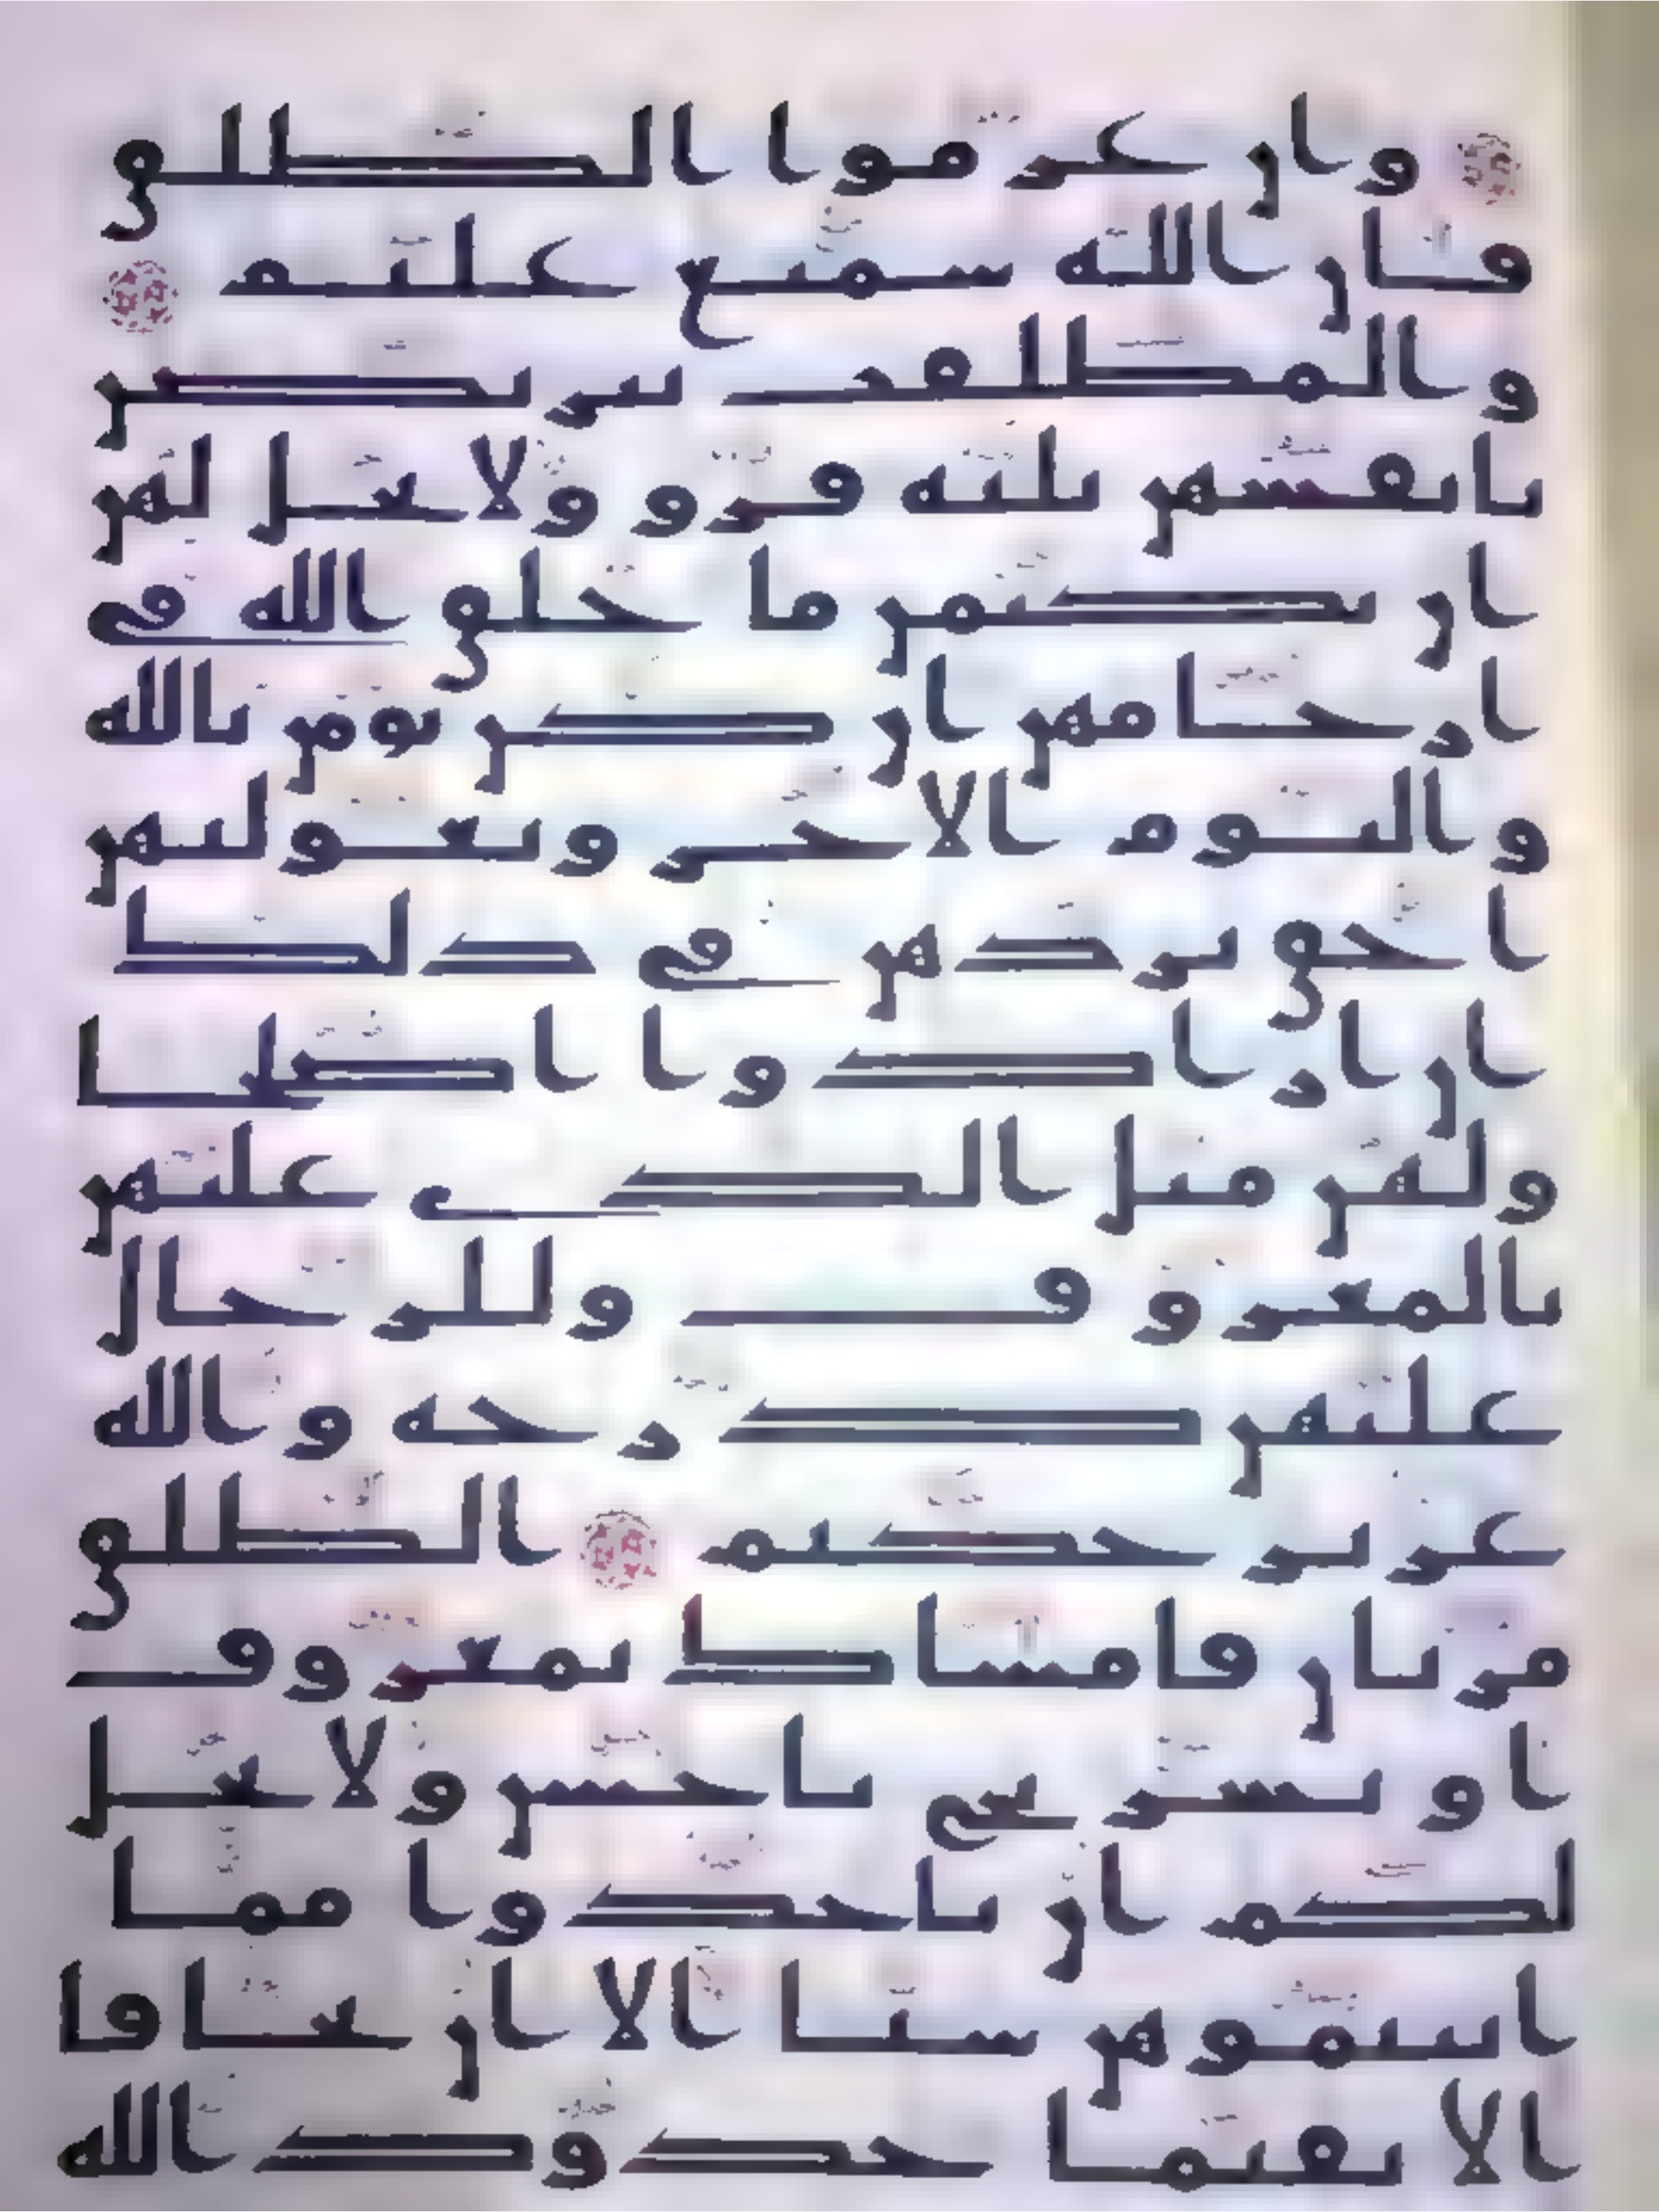 وان عزموا الطلق
فان الله سميع عليم
والمطلقت يتربصن
بانفسهن ثلثه قرو ولا يحل لهن
ان يكتمن ما خلق الله في
ارحامهن ان كن يومن بالله
واليوم الاخر وبعولتهن
احق بردهن في ذلك
ان ارادوا اصلحا
ولهن مثل الذي عليهن
بالمعروف وللرجال
عليهن درجه والله
عزيز حكيم الطلق
مرتان فامساك بمعروف
او تسريح باحسن ولا يحل
لكم ان تاخذوا مما
اتيتموهن شيا الا ان يخافا
الا يقيما حدود الله